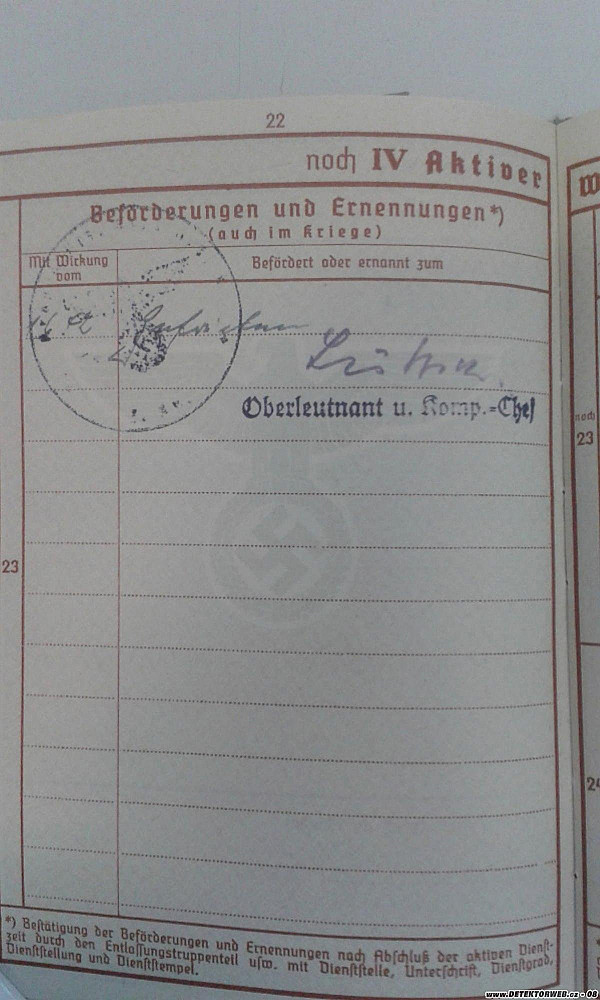 22
noch IV Aktiver
W
Beförderungen und Ernennungen*)
(auch im Kriege)
Mit Wirkung vom
Befördert oder ernannt zum
Oberleutnant u. Komp.-Chef
noch
23
23
24
*) Bestätigung der Beförderungen und Ernennungen nach Abschluß der aktiven Dienst-
zeit durch den Entlassungstruppenteil usw. mit Dienststelle, Unterschrift, Dienstgrad,
Dienststellung und Dienststempel.
www.DETEKTORWEB.cz - 08